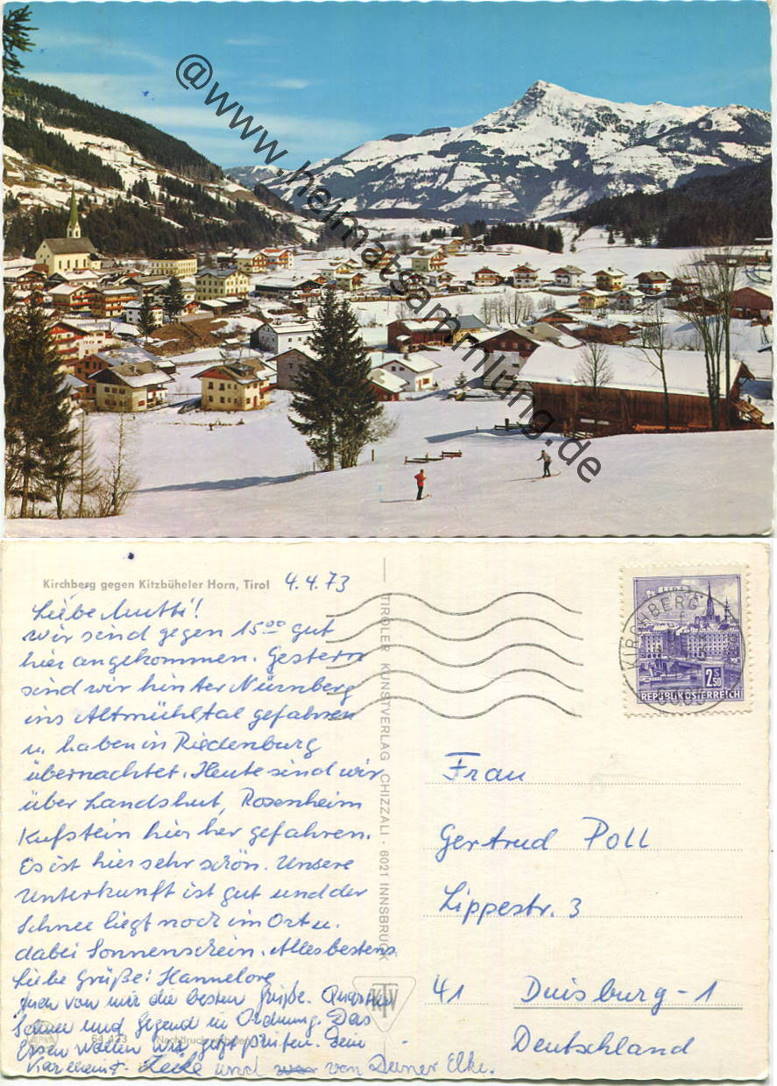 @www.heimatsammlung.de
Kirchberg gegen Kitzbüheler Horn, Tirol 4.4.73
Liebe Mutti!
Wir sind gegen 15⁰⁰ gut
hier angekommen. Gestern
sind wir hinter Nürnberg
ins Altmühltal gefahren
u. haben in Riedenburg
übernachtet. Heute sind wir
über Landshut, Rosenheim
Kufstein hier her gefahren.
Es ist hier sehr schön. Unsere
Unterkunft ist gut und der
Schnee liegt noch im Ort u.
dabei Sonnenschein. Alles bestens.
Liebe Grüße: Hannelore
Auch von mir die besten Grüße. Quartier
und Gegend in Ordnung. Das
Essen wollen wir jetzt prüfen. Dein
und von Deiner Elke.
TIROLER KUNSTVERLAG CHIZZALI · 6021 INNSBRUCK
KIRCHBERG
2.50
REPUBLIK ÖSTERREICH
Frau
Gertrud Poll
Lippestr. 3
41 Duisburg-1
Deutschland